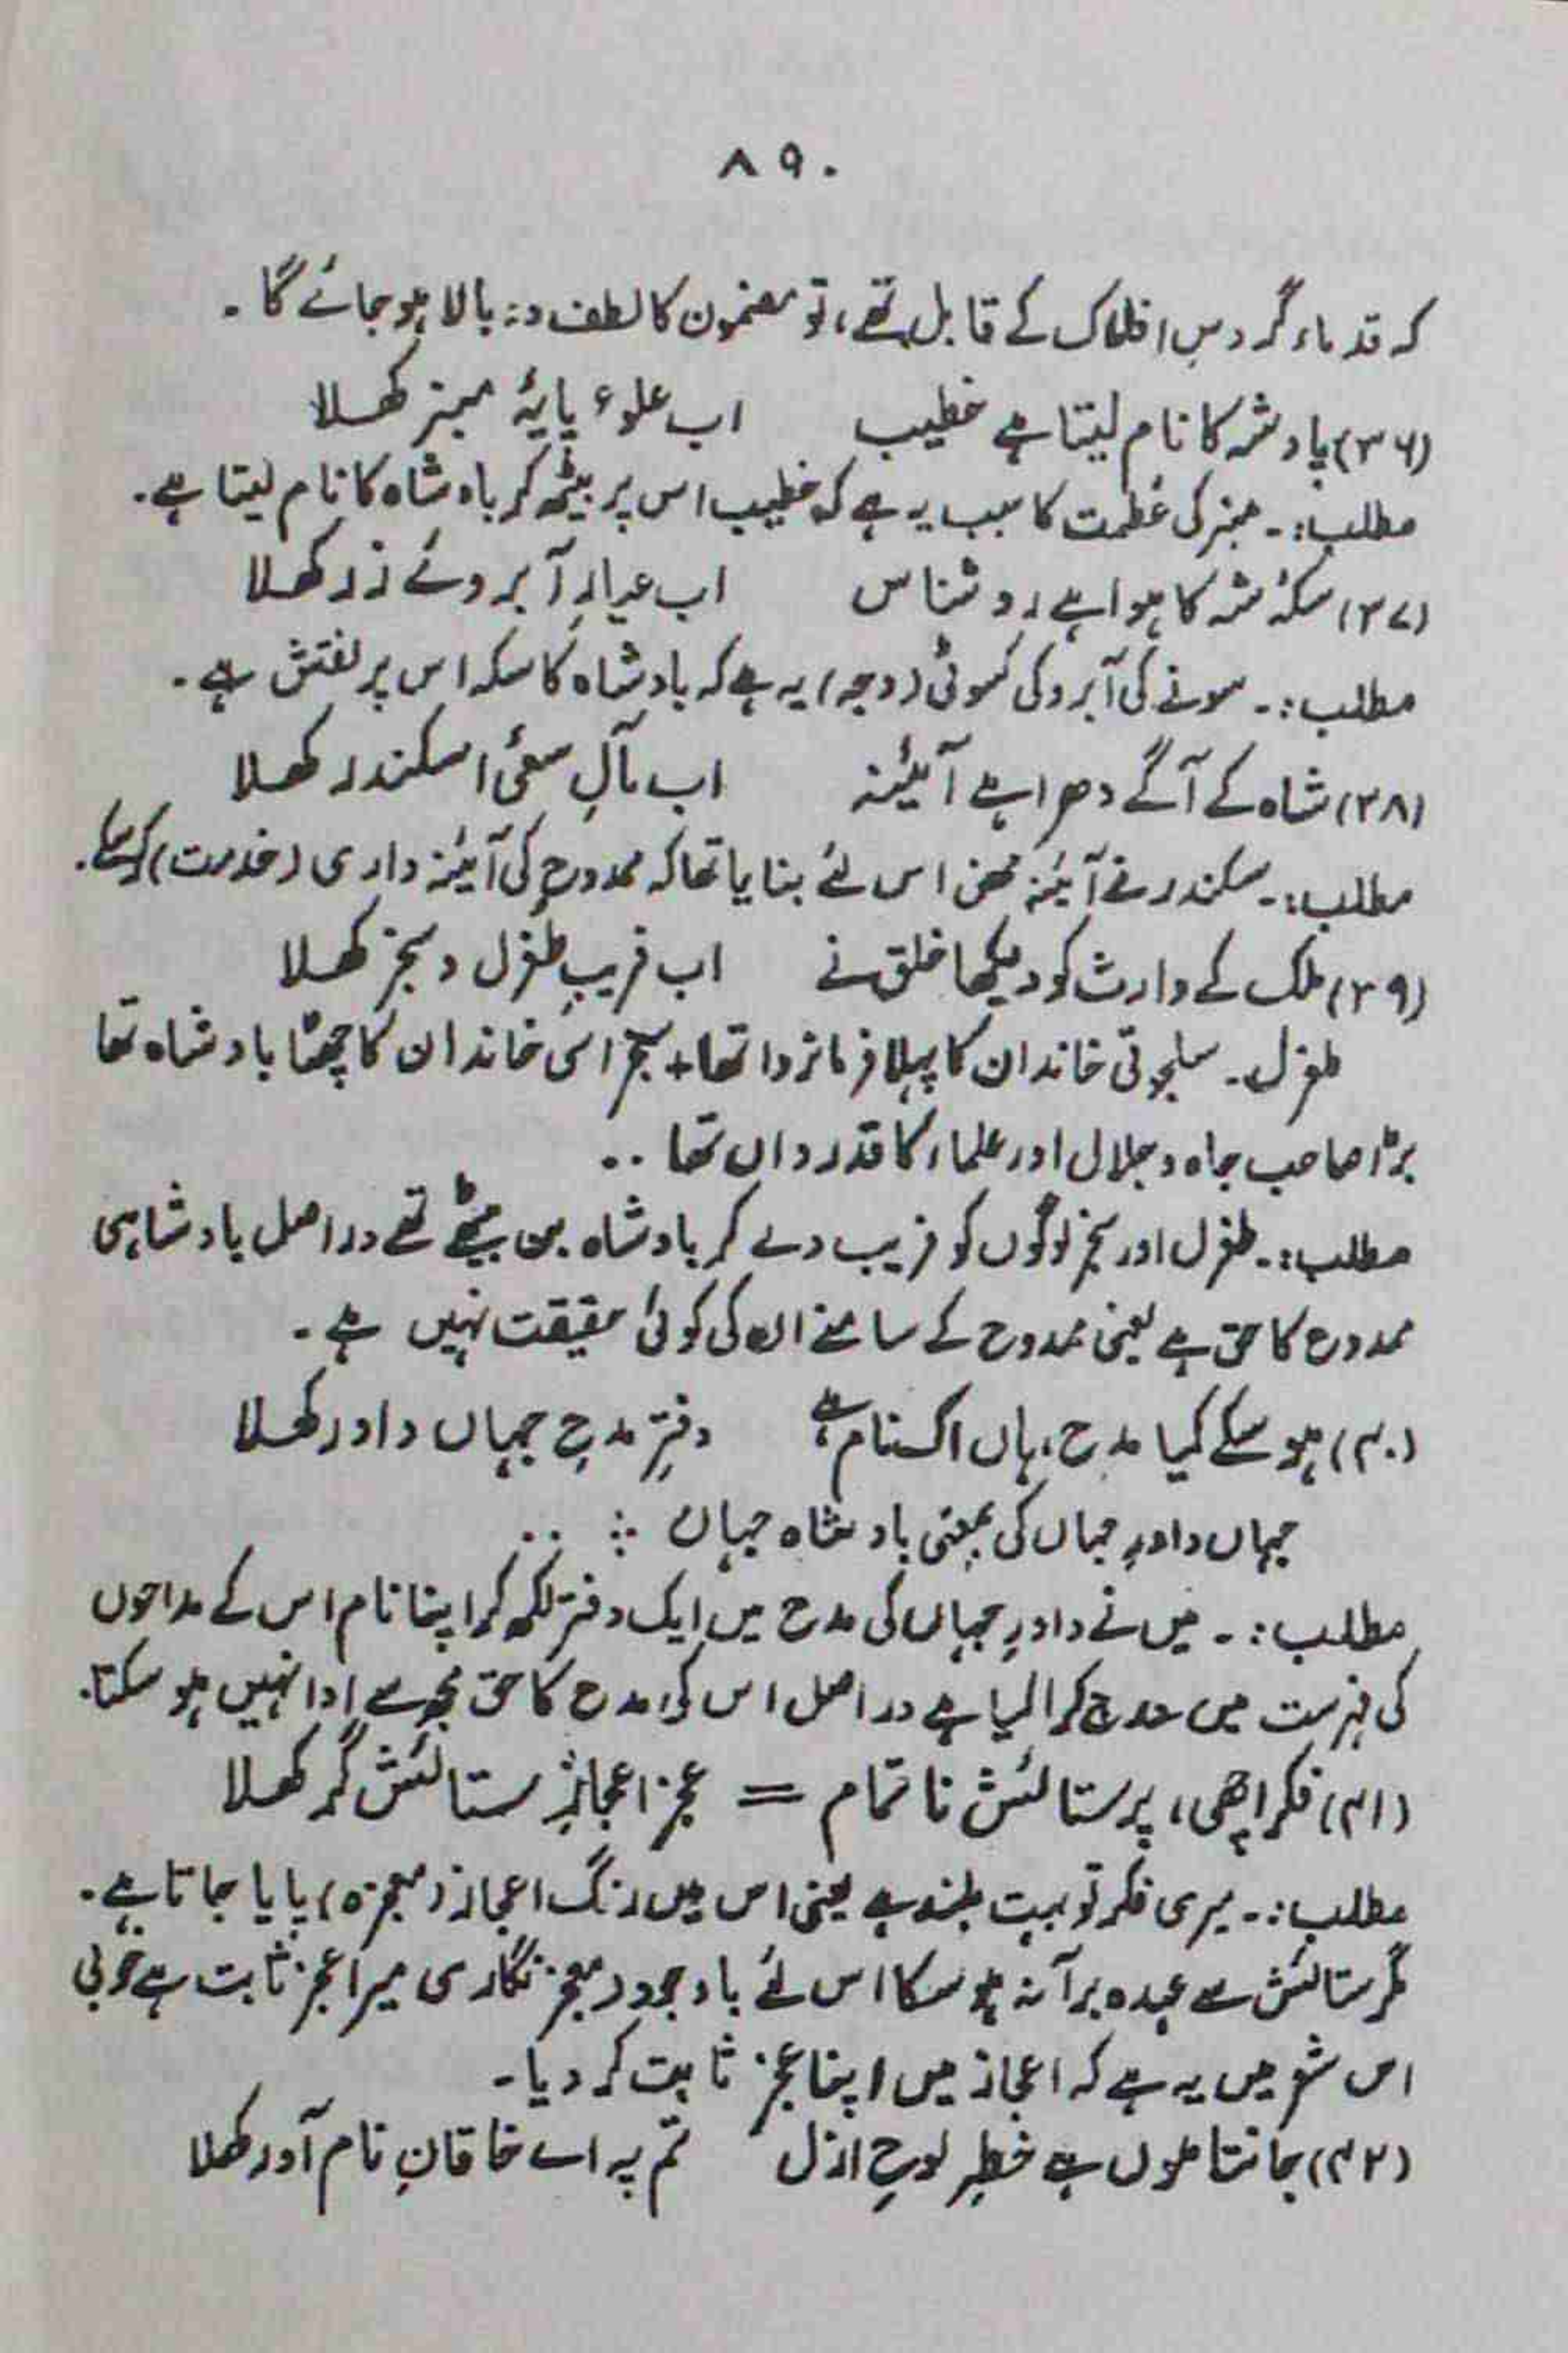 ۸۹۰
کہ قدماء گردشِ افلاک کے قابل تھے، تو مضمون کا لطف دو بالا ہو جائے گا۔
(۳۶) پادشہ کا نام لیتا ہے خطیب اب علوء پایۂ ممبز کھلا
مطلب:۔ ممبز کی عظمت کا سبب یہ ہے کہ خطیب اس پر بیٹھ کر بادشاہ کا نام لیتا ہے۔
(۳۷) سکۂ شہ کا ہوا ہے روشناس اب عیارِ آبروئے زر کھلا
مطلب:۔ سونے کی آبرو کی کسوٹی (وجہ) یہ ہے کہ بادشاہ کا سکہ اس پر نقش ہے۔
(۳۸) شاہ کے آگے دھرا ہے آئینہ اب مآلِ سعیٔ اسکندر کھلا
مطلب:۔ سکندر نے آئینہ محض اس لئے بنایا تھا کہ ممدوح کی آئینہ داری (خدمت) کرسکے۔
(۳۹) ملک کے وارث کو دیکھا خلق نے اب فریبِ طغرل و سنجر کھلا
طغرل۔ سلجوقی خاندان کا پہلا فرمانروا تھا + سنجر اسی خاندان کا چھٹا بادشاہ تھا
بڑا صاحب جاہ و جلال اور علماء کا قدرداں تھا ..
مطلب:۔ طغرل اور سنجر لوگوں کو فریب دے کر بادشاہ بن بیٹھے تھے دراصل بادشاہی
ممدوح کا حق ہے یعنی ممدوح کے سامنے ان کی کوئی حقیقت نہیں ہے۔
(۴۰) ہو سکے کیا مدح، ہاں اک نام ہے دفترِ مدحِ جہاں داور کھلا
جہاں داورِ جہاں کی بمعنی بادشاہ جہاں ؞ ..
مطلب:۔ میں نے داورِ جہاں کی مدح میں ایک دفتر لکھ کر اپنا نام اس کے مداحوں
کی فہرست میں درج کرا لیا ہے دراصل اس کی مدح کا حق مجھ سے ادا نہیں ہو سکتا۔
(۴۱) فکر اچھی، پر ستائش نا تمام = عجز اعجازِ ستائش گر کھلا
مطلب:۔ میری فکر تو بہت بلند ہے یعنی اس میں رنگ اعجاز (معجزہ) پایا جاتا ہے۔
مگر ستائش سے عہدہ برآ نہ ہو سکا اس لئے باوجود معجز نگاری میرا عجز ثابت ہے خوبی
اس شعر میں یہ ہے کہ اعجاز میں اپنا عجز ثابت کر دیا۔
(۴۲) جانتا ہوں ہے خطِ لوحِ ازل تم پہ اے خاقانِ نام آور کھلا